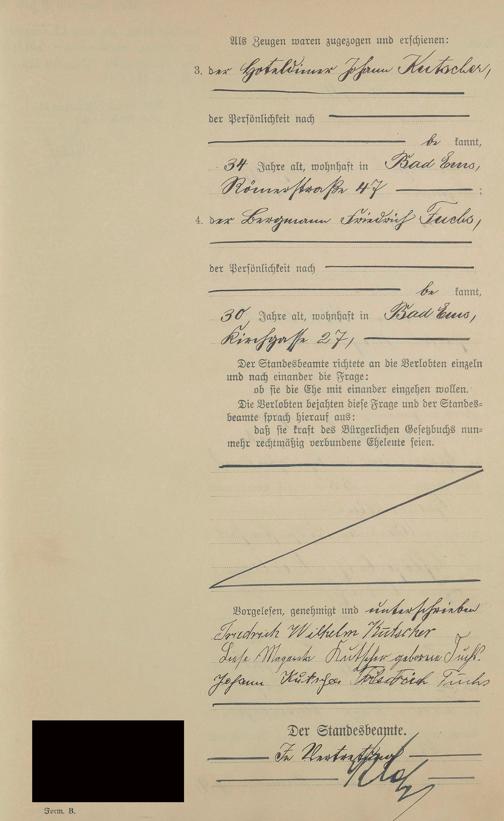 Als Zeugen waren zugezogen und erschienen:
3. der Hoteldiener Johann Kutscher,
der Persönlichkeit nach
be kannt,
34 Jahre alt, wohnhaft in Bad Ems,
Römerstraße 47 ;
4. der Bergmann Friedrich Fuchs,
der Persönlichkeit nach
be kannt,
30 Jahre alt, wohnhaft in Bad Ems,
Kirchgasse 27,
Der Standesbeamte richtete an die Verlobten einzeln
und nach einander die Frage:
ob sie die Ehe mit einander eingehen wollen.
Die Verlobten bejahten diese Frage und der Standes-
beamte sprach hierauf aus:
daß sie kraft des Bürgerlichen Gesetzbuchs nun-
mehr rechtmäßig verbundene Eheleute seien.
Vorgelesen, genehmigt und unterschrieben
Friedrich Wilhelm Kutscher
Kutscher geborene Fuchs.
Johann Kutscher Friedrich Fuchs
Der Standesbeamte.
In Vertretung
Form. B.